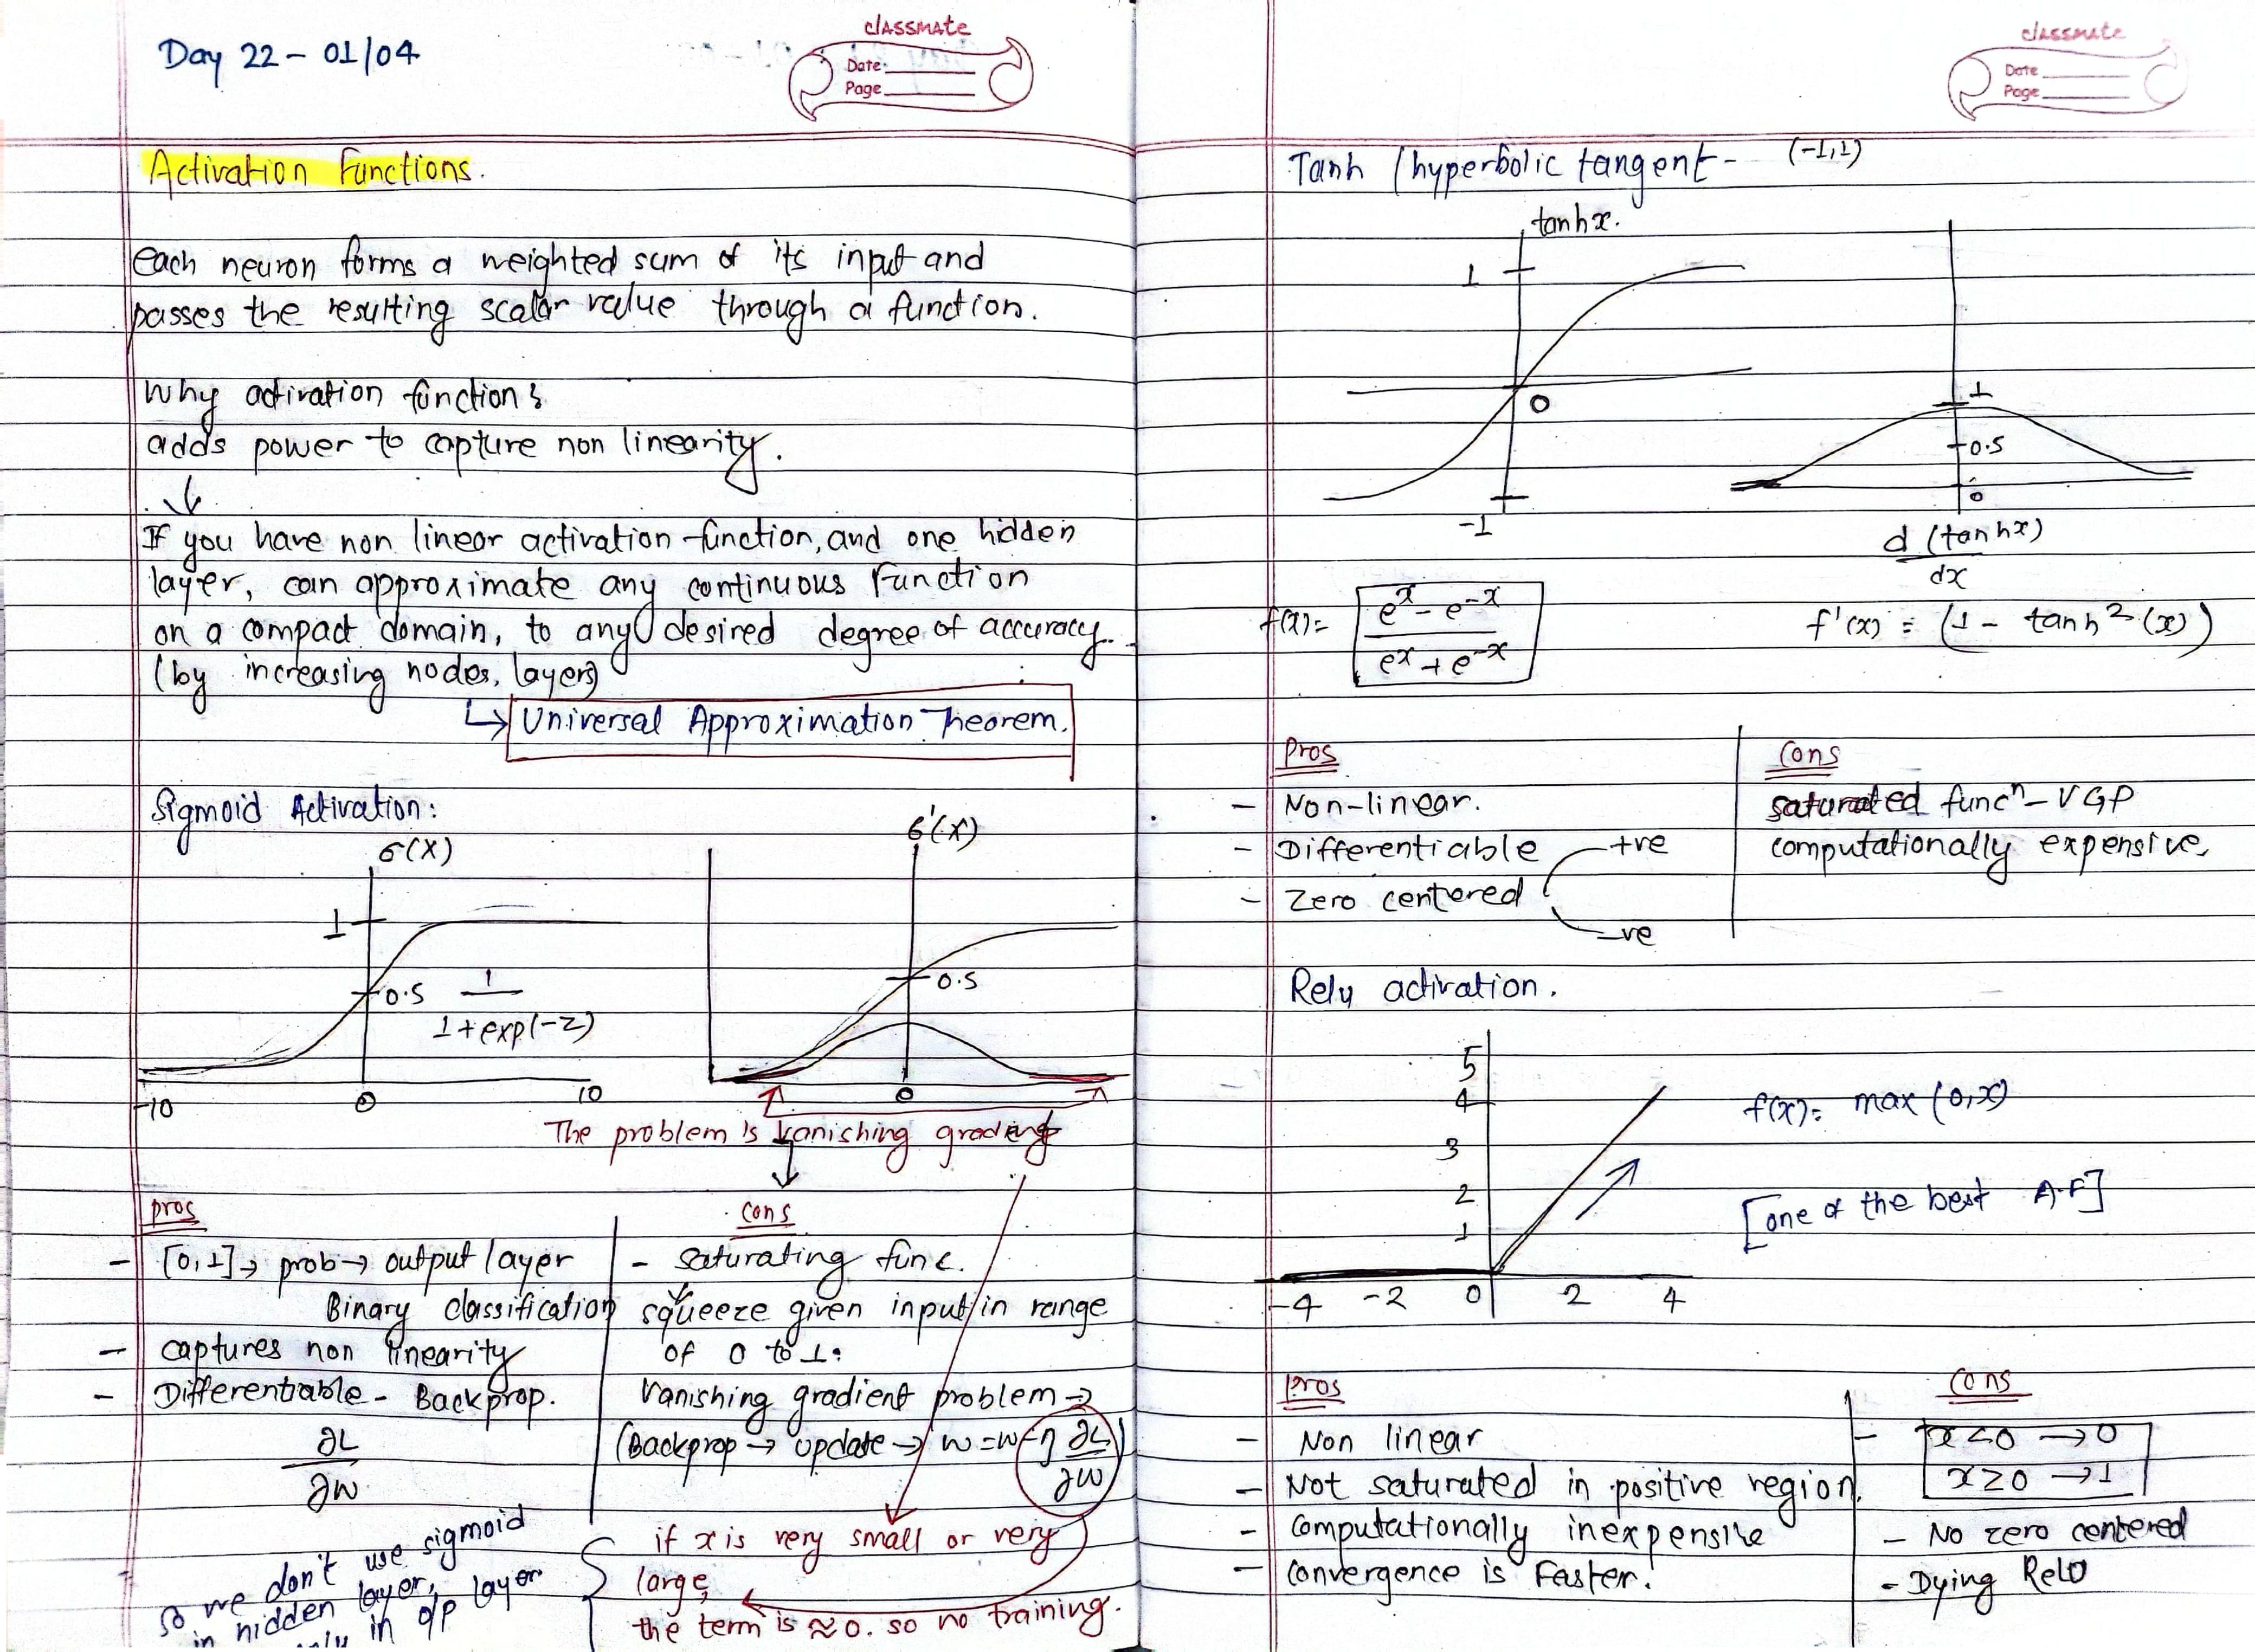 Day 22 - 01/04
classmate
Date
Page
Activation Functions.
each neuron forms a weighted sum of its input and
passes the resulting scalar value through a function.
Why activation functions
adds power to capture non linearity.
If you have non linear activation function, and one hidden
layer, can approximate any continuous function
on a compact domain, to any desired degree of accuracy.
(by increasing nodes, layers)
↳ Universal Approximation Theorem.
Sigmoid Activation:
σ(x)
1
0.5
1
1+exp(-z)
-10
0
10
σ'(x)
0.5
0
The problem is vanishing
pros
- [0,1] → prob → output layer
Binary classification
- captures non linearity
- Differentiable - Backprop.
∂L
∂w
so we don't use sigmoid
in hidden layer,
in o/p layer
cons
- saturating func.
squeeze given input in range
of 0 to 1.
Vanishing gradient problem →
(Backprop → update → w = w - η ∂L
∂w
if x is very small or very
large,
the term is ≈ 0. so no training.
classmate
Date
Page
Tanh / hyperbolic tangent - (-1,1)
tanhx.
1
0
-1
1
0.5
0
d (tanhx)
dx
f(x) = e^x - e^-x
e^x + e^-x
f'(x) = (1 - tanh²(x))
Pros
- Non-linear.
- Differentiable
- Zero centered
+ve
-ve
Cons
saturated funcⁿ - VGP
computationally expensive,
Relu activation.
5
4
3
2
1
-4 -2 0 2 4
f(x) = max (0,x)
[one of the best A.F]
Pros
- Non linear
- Not saturated in positive region.
- computationally inexpensive
- Convergence is Faster.
cons
- x<0 → 0
x≥0 → 1
- No zero centered
- Dying Relu